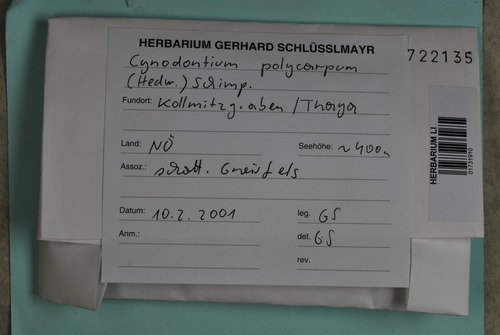 HERBARIUM GERHARD SCHLÜSSLMAYR
722135
Cynodontium polycarpum
(Hedw.) Schimp.
Fundort: Kollmitzgraben / Thaya
Land: NÖ Seehöhe: ~ 400m
Assoz.: schatt. Gneisfels
Datum: 10.2.2001 leg. GS
Anm.: det. GS
rev.
HERBARIUM LI
01731910